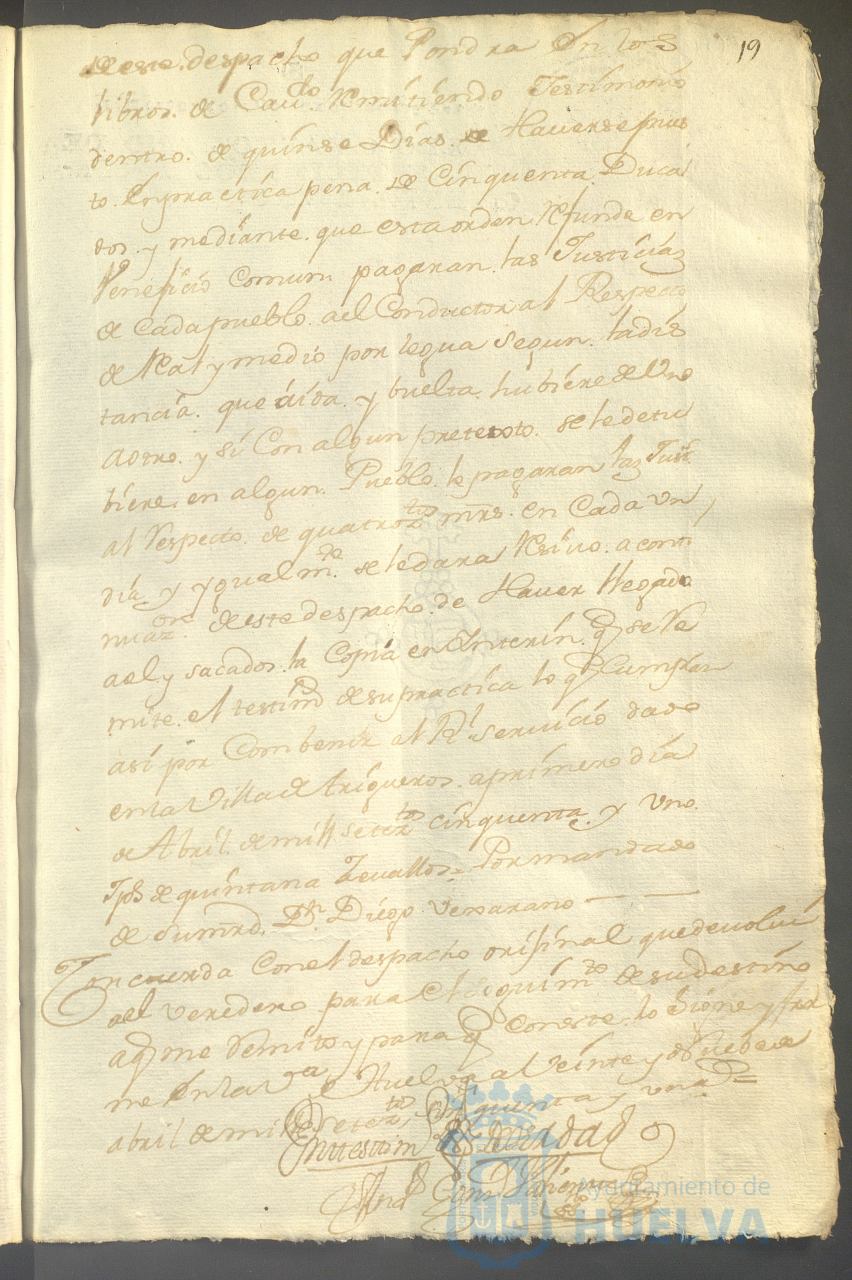 19
de este despacho que Pondra en los
libros de Cavdo. Remitiendo Testimonio
dentro de quinse Dias de Haverse pues
to. En practica pena de Cinquenta Duca
dos. y mediante que esta orden Refunde en
Veneficio Comun pagaran las Justicias
de Cada pueblo. a el Conductor al Respecto
de Real y medio por legua segun la dis
tancia que áida y buelta hubiere de Uno
a otro. y si Con algun pretexto se le detu
biere en algun Pueblo le pagaran las Justs.
al Respecto de quatrotos mrs. en Cada un
dia y ygualmte. se le dara Resivo a conti
nuazon. de este despacho de Haver llegado
a el y sacados la Copia en Ynterin q se Re
mite el testimo de su practica lo q Cumplan
asi por Combenir al Rl servicio dado
en la Villa de trigueros a primero dia
de Abril de mill setetos cinquenta y Uno.
de quintana Zevallos = Por mandado
de su mrd. Dn. Diego Venarano
Concuerda Con el despacho orijinal que devolvi
a el Veredero para el seguimto de su destino
a q me Remito y para q Conste lo Signe y fir
me En la Va de Huelva al Veinte y de
abril de mill setetos Cinquenta y uno =
En testim de Verdad
Ayuntamiento de
HUELVA